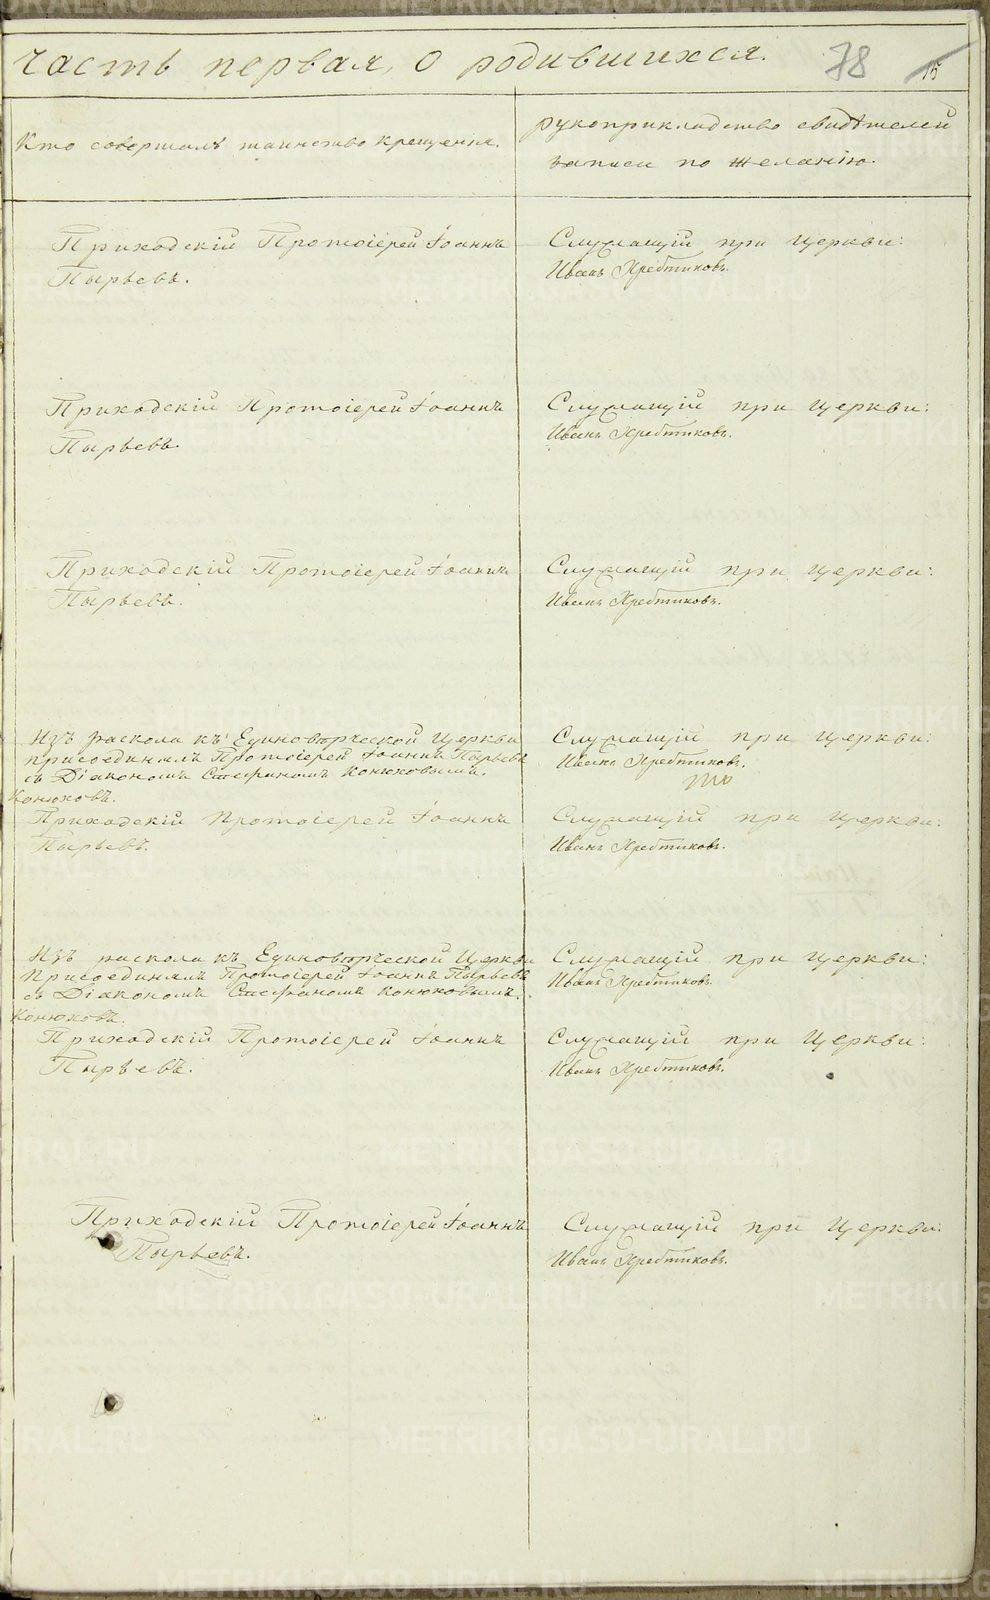 Часть первая, о родившихся.
78
15
Кто совершалъ таинство крещенія.
рукоприкладство свидѣтелей
записи по желанію.
Приходскій Протоіерей Іоаннъ
Пырьевъ.
Служащій при Церкви:
Иванъ Хребтиковъ.
Приходскій Протоіерей Іоаннъ
Пырьевъ.
Служащій при Церкви:
Иванъ Хребтиковъ.
Приходскій Протоіерей Іоаннъ
Пырьевъ.
Служащій при Церкви:
Иванъ Хребтиковъ.
Изъ раскола къ Единоверческой Церкви
присоединялъ Протоіерей Іоаннъ Пырьевъ
съ Діакономъ Стефаномъ Конюховымъ.
Конюховъ.
Служащій при Церкви:
Иванъ Хребтиковъ.
Приходскій Протоіерей Іоаннъ
Пырьевъ.
Служащій при Церкви:
Иванъ Хребтиковъ.
Изъ раскола къ Единоверческой Церкви
Присоединялъ Протоіерей Іоаннъ Пырьевъ
съ Діакономъ Стефаномъ Конюховымъ.
Конюховъ.
Служащій при Церкви:
Иванъ Хребтиковъ.
Приходскій Протоіерей Іоаннъ
Пырьевъ.
Служащій при Церкви:
Иванъ Хребтиковъ.
Приходскій Протоіерей Іоаннъ
Пырьевъ.
Служащій при Церкви:
Иванъ Хребтиковъ.
METRIKI.GASO-URAL.RU